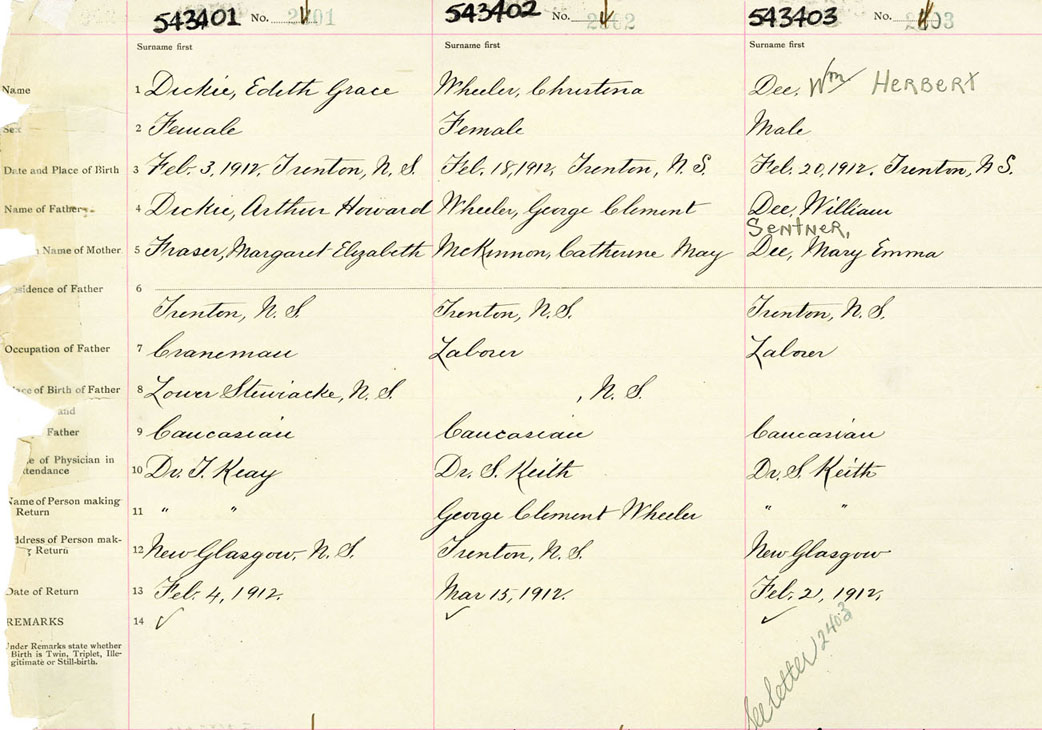 543401 No. 2401 543402 No. 2402 543403 No. 2403
Surname first Surname first Surname first
Name 1 Dickie, Edith Grace Wheeler, Christena Dee, Wm HERBERT
Sex 2 Female Female Male
Date and Place of Birth 3 Feb. 3, 1912. Trenton, N. S. Feb. 18, 1912, Trenton, N. S. Feb. 20, 1912. Trenton, N S.
Name of Father 4 Dickie, Arthur Howard Wheeler, George Clement Dee, William
SENTNER,
Name of Mother 5 Fraser, Margaret Elizabeth McKinnon, Catherine May Dee, Mary Emma
sidence of Father 6
Trenton, N. S. Trenton, N. S. Trenton, N. S.
Occupation of Father 7 Craneman Laborer Laborer
ace of Birth of Father 8 Lower Stewiacke, N. S. , N. S.
and
Father 9 Caucasian Caucasian Caucasian
e of Physician in
tendance 10 Dr. J. Keay Dr. S. Keith Dr. S. Keith
Name of Person making
Return 11 " " George Clement Wheeler " "
ddress of Person mak-
g Return 12 New Glasgow, N. S. Trenton, N. S. New Glasgow
Date of Return 13 Feb. 4, 1912. Mar 15, 1912. Feb. 21, 1912,
REMARKS 14 ✓ ✓ ✓
Under Remarks state whether
Birth is Twin, Triplet, Ille-
gitimate or Still-birth.
See letter 2403